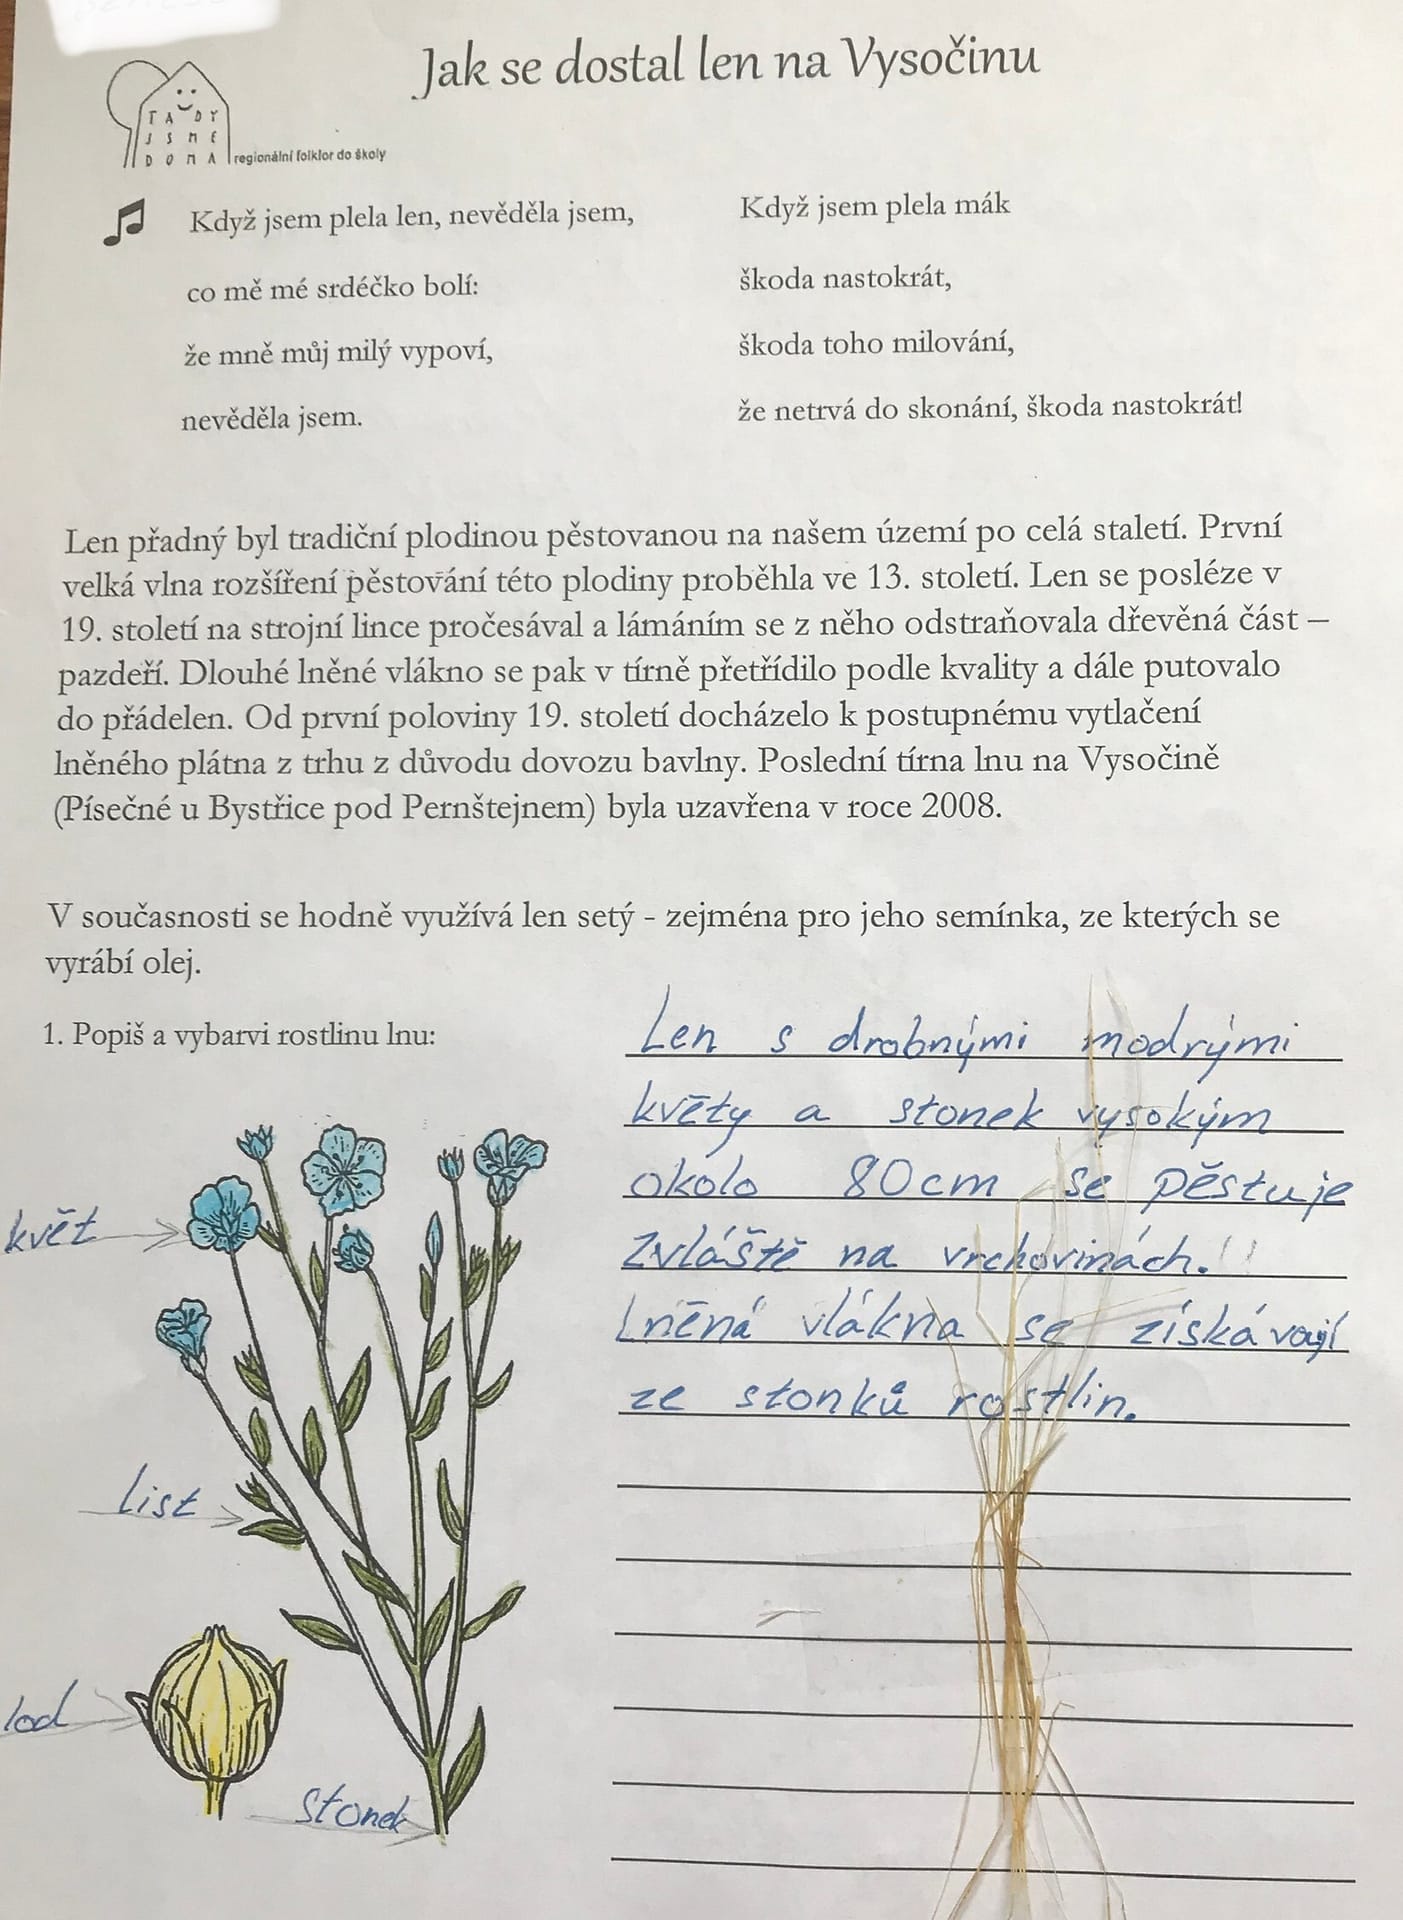 Jak se dostal len na Vysočinu
TADY
JSME
DOMA
regionální folklor do školy
Když jsem plela len, nevěděla jsem,
co mě mé srdéčko bolí:
že mně můj milý vypoví,
nevěděla jsem.
Když jsem plela mák
škoda nastokrát,
škoda toho milování,
že netrvá do skonání, škoda nastokrát!
Len přadný byl tradiční plodinou pěstovanou na našem území po celá staletí. První
velká vlna rozšíření pěstování této plodiny proběhla ve 13. století. Len se posléze v
19. století na strojní lince pročesával a lámáním se z něho odstraňovala dřevěná část –
pazdeří. Dlouhé lněné vlákno se pak v tírně přetřídilo podle kvality a dále putovalo
do přádelen. Od první poloviny 19. století docházelo k postupnému vytlačení
lněného plátna z trhu z důvodu dovozu bavlny. Poslední tírna lnu na Vysočině
(Písečné u Bystřice pod Pernštejnem) byla uzavřena v roce 2008.
V současnosti se hodně využívá len setý - zejména pro jeho semínka, ze kterých se
vyrábí olej.
1. Popiš a vybarvi rostlinu lnu:
Len s drobnými modrými
květy a stonek vysokým
okolo 80cm se pěstuje
Zvláště na vrchovinách.
Lněná vlákna se získávají
ze stonků rostlin.
květ
list
lod
stonek